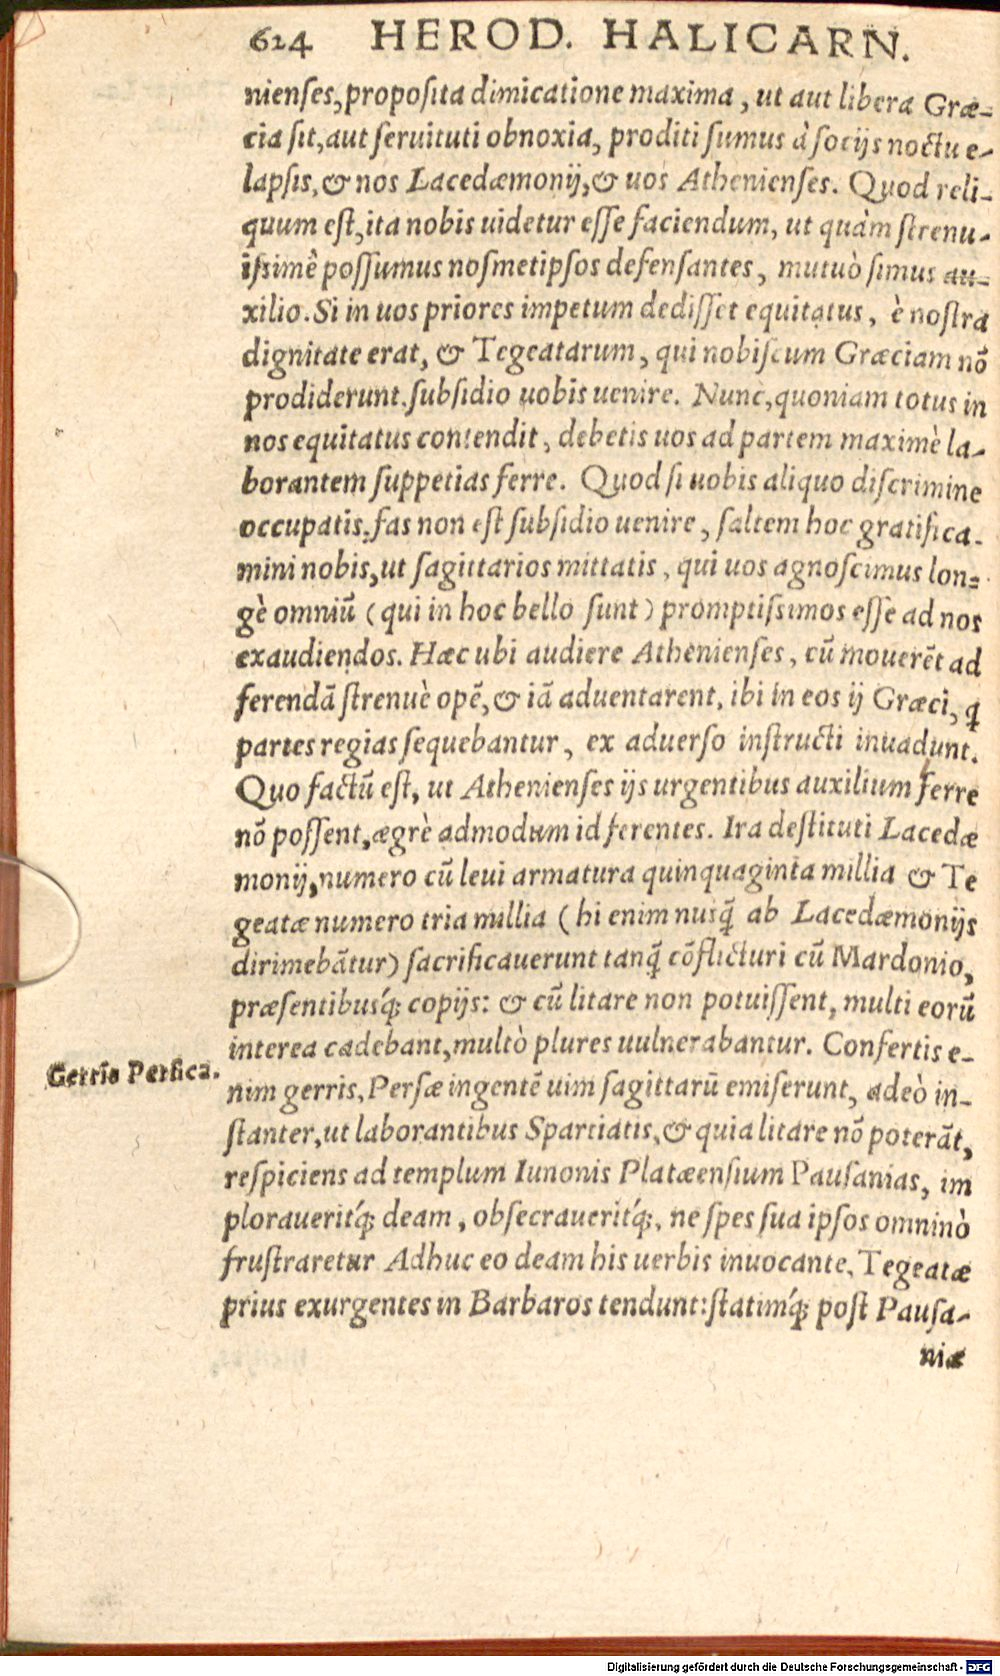 624 HEROD. HALICARN.
nienſes, propoſita dimicatione maxima, ut aut libera Græ-
cia ſit, aut ſeruituti obnoxia, proditi ſumus à ſocijs noctu e-
lapſis, & nos Lacedæmonij, & uos Athenienſes. Quod reli-
quum eſt, ita nobis uidetur eſſe faciendum, ut quàm ſtrenu-
iſsimè poſſumus noſmetipſos defenſantes, mutuò ſimus au-
xilio. Si in uos priores impetum dediſſet equitatus, è noſtra
dignitate erat, & Tegeatarum, qui nobiſcum Græciam nõ
prodiderunt. ſubſidio uobis uenire. Nunc, quoniam totus in
nos equitatus contendit, debetis uos ad partem maximè la-
borantem ſuppetias ferre. Quod ſi uobis aliquo diſcrimine
occupatis, fas non eſt ſubſidio uenire, ſaltem hoc gratifica-
mini nobis, ut ſagittarios mittatis, qui uos agnoſcimus lon-
gè omniũ (qui in hoc bello ſunt) promptiſsimos eſſe ad nos
exaudiendos. Hæc ubi audiere Athenienſes, cũ mouerẽt ad
ferendã ſtrenuè opẽ, & iã aduentarent, ibi in eos ij Græci, q̃
partes regias ſequebantur, ex aduerſo inſtructi inuadunt.
Quo factũ eſt, ut Athenienſes ijs urgentibus auxilium ferre
nõ poſſent, ægrè admodum id ferentes. Ira deſtituti Lacedæ
monij, numero cũ leui armatura quinquaginta millia & Te
geatæ numero tria millia (hi enim nusq̃ ab Lacedæmonijs
dirimebãtur) ſacrificauerunt tanq̃ cõflicturi cũ Mardonio,
præſentibusq́; copijs: & cũ litare non potuiſſent, multi eorũ
interea cadebant, multò plures uulnerabantur. Confertis e-
Gerris Perſica.
nim gerris, Perſæ ingentẽ uim ſagittarũ emiſerunt, adeò in-
ſtanter, ut laborantibus Spartiatis, & quia litare nõ poterãt,
reſpiciens ad templum Iunonis Platæenſium Pauſanias, im
plorauerit́q; deam, obſecrauerit́q;, ne ſpes ſua ipſos omninò
fruſtraretur Adhuc eo deam his uerbis inuocante, Tegeatæ
prius exurgentes in Barbaros tendunt: ſtatimq́; poſt Pauſa-
niæ
Digitalisierung gefördert durch die Deutsche Forschungsgemeinschaft - DFG